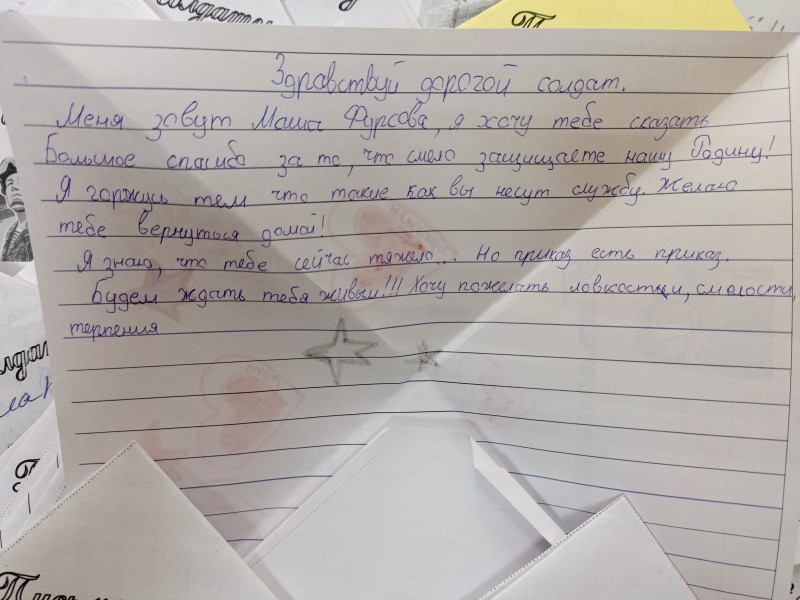 Здравствуй дорогой солдат.
Меня зовут Маша Фурсова, я хочу тебе сказать
Большое спасибо за то, что смело защищаете нашу Родину!
Я горжусь тем что такие как вы несут службу. Желаю
тебе вернуться домой!
Я знаю, что тебе сейчас тяжело... Но приказ есть приказ.
Будем ждать тебя живым!!! Хочу пожелать ловкости, смелости,
терпения